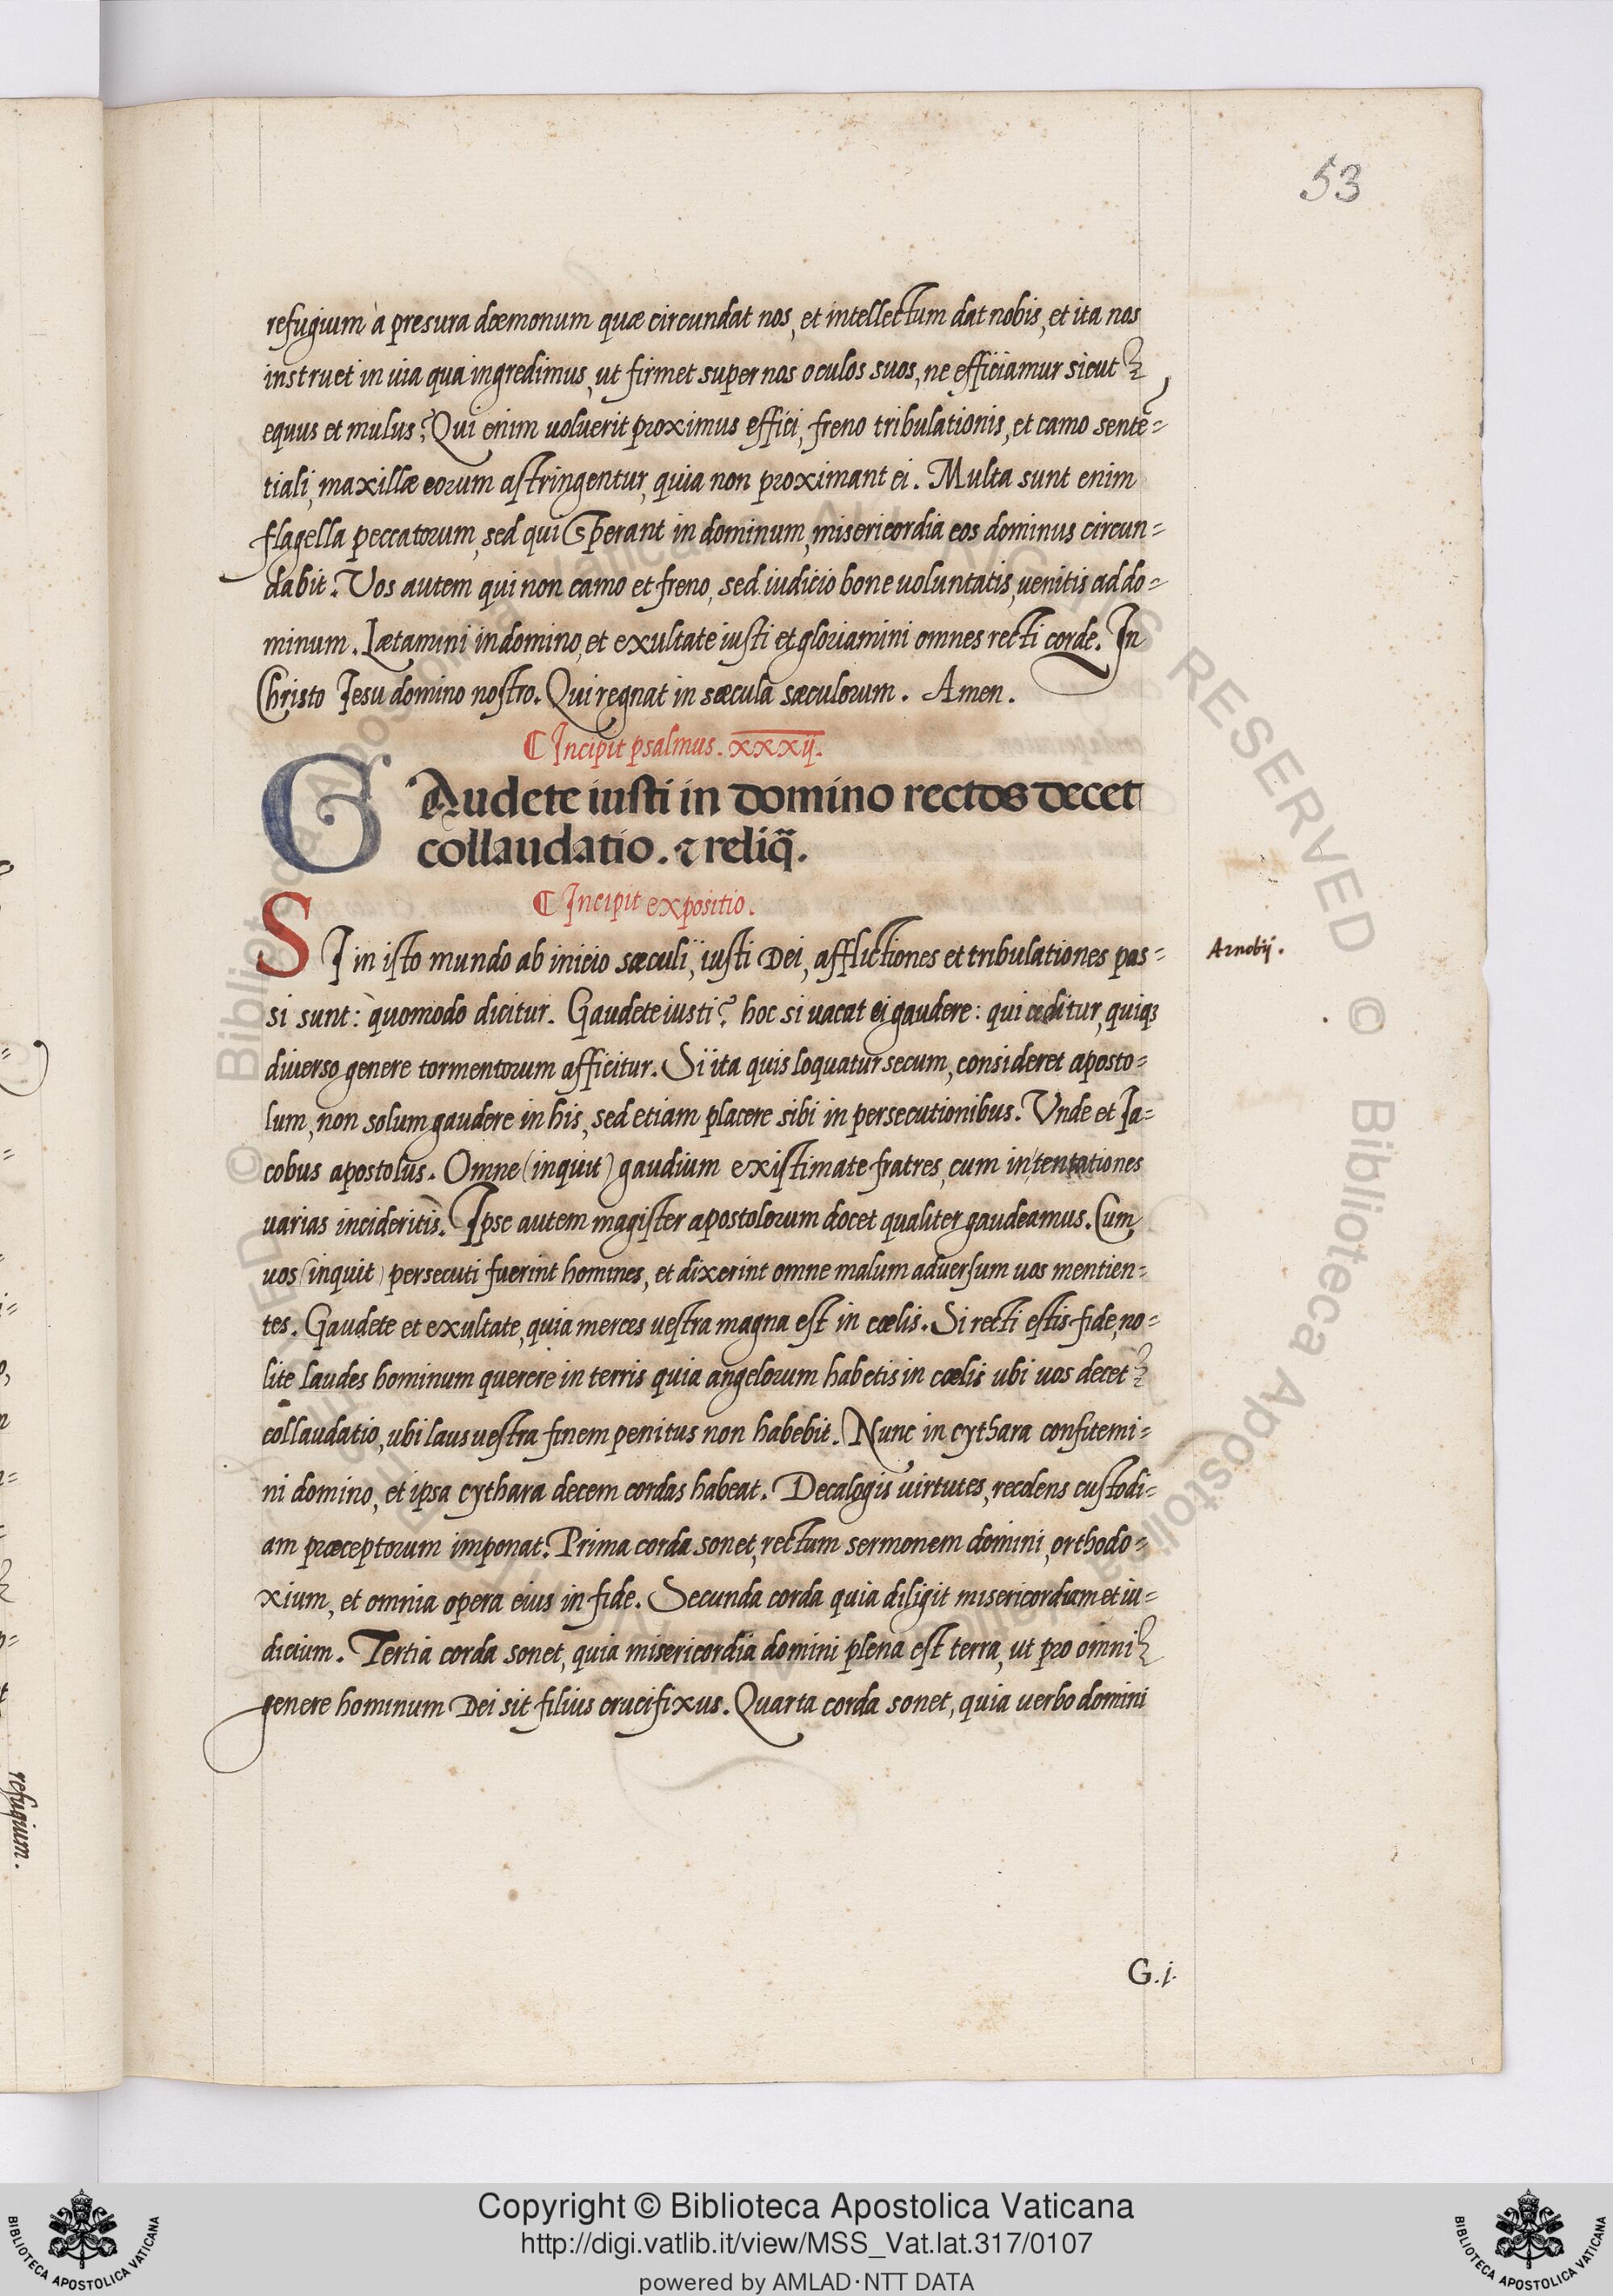 53
refugium à presura dæmonum quæ circundat nos, et intellectum dat nobis, et ita nos
instruet in uia qua ingredimus, ut firmet super nos oculos suos, ne efficiamur sicut
equus et mulus? Qui enim uoluerit proximus effici, freno tribulationis, et camo sentẽ=
tiali, maxillæ eorum astringentur, quia non proximant ei. Multa sunt enim
flagella peccatorum, sed qui sperant in dominum, misericordia eos dominus circun=
dabit. Vos autem qui non camo et freno, sed iudicio bone uoluntatis, uenitis ad do=
minum. Lætamini in domino, et exultate iusti et gloriamini omnes recti corde. In
Christo Jesu domino nostro. Qui regnat in sæcula sæculorum. Amen.
¶ Incipit psalmus. xxxij.
GAudete iusti in domino rectos decet
collaudatio. ⁊ reliq̃.
¶ Incipit expositio.
SI in isto mundo ab inicio sæculi, iusti Dei, afflictiones et tribulationes pas=
Arnobij.
si sunt: quomodo dicitur. Gaudete iusti? hoc si uacat ei gaudere: qui cæditur, quiq;
diuerso genere tormentorum afficitur. Si ita quis loquatur secum, consideret aposto=
lum, non solum gaudere in his, sed etiam placere sibi in persecutionibus. Vnde et Ja=
cobus apostolus. Omne (inquit) gaudium existimate fratres, cum in tentationes
uarias incideritis. Ipse autem magister apostolorum docet qualiter gaudeamus. Cum
uos (inquit) persecuti fuerint homines, et dixerint omne malum aduersum uos mentien=
tes. Gaudete et exultate, quia merces uestra magna est in cœlis. Si recti estis fide, no=
lite laudes hominum querere in terris quia angelorum habetis in cœlis ubi uos decet
collaudatio, ubi laus uestra finem penitus non habebit. Nunc in cythara confitemi=
ni domino, et ipsa cythara decem cordas habeat. Decalogis uirtutes, recolens custodi=
am præceptorum imponat. Prima corda sonet, rectum sermonem domini, orthodo=
xium, et omnia opera eius in fide. Secunda corda quia diligit misericordiam et iu=
dicium. Tertia corda sonet, quia misericordia domini plena est terra, ut pro omni
genere hominum Dei sit filius crucifixus. Quarta corda sonet, quia uerbo domini
G.i.
refugium.
Copyright © Biblioteca Apostolica Vaticana
http://digi.vatlib.it/view/MSS_Vat.lat.317/0107
powered by AMLAD·NTT DATA
BIBLIOTECA APOSTOLICA VATICANA
BIBLIOTECA APOSTOLICA VATICANA